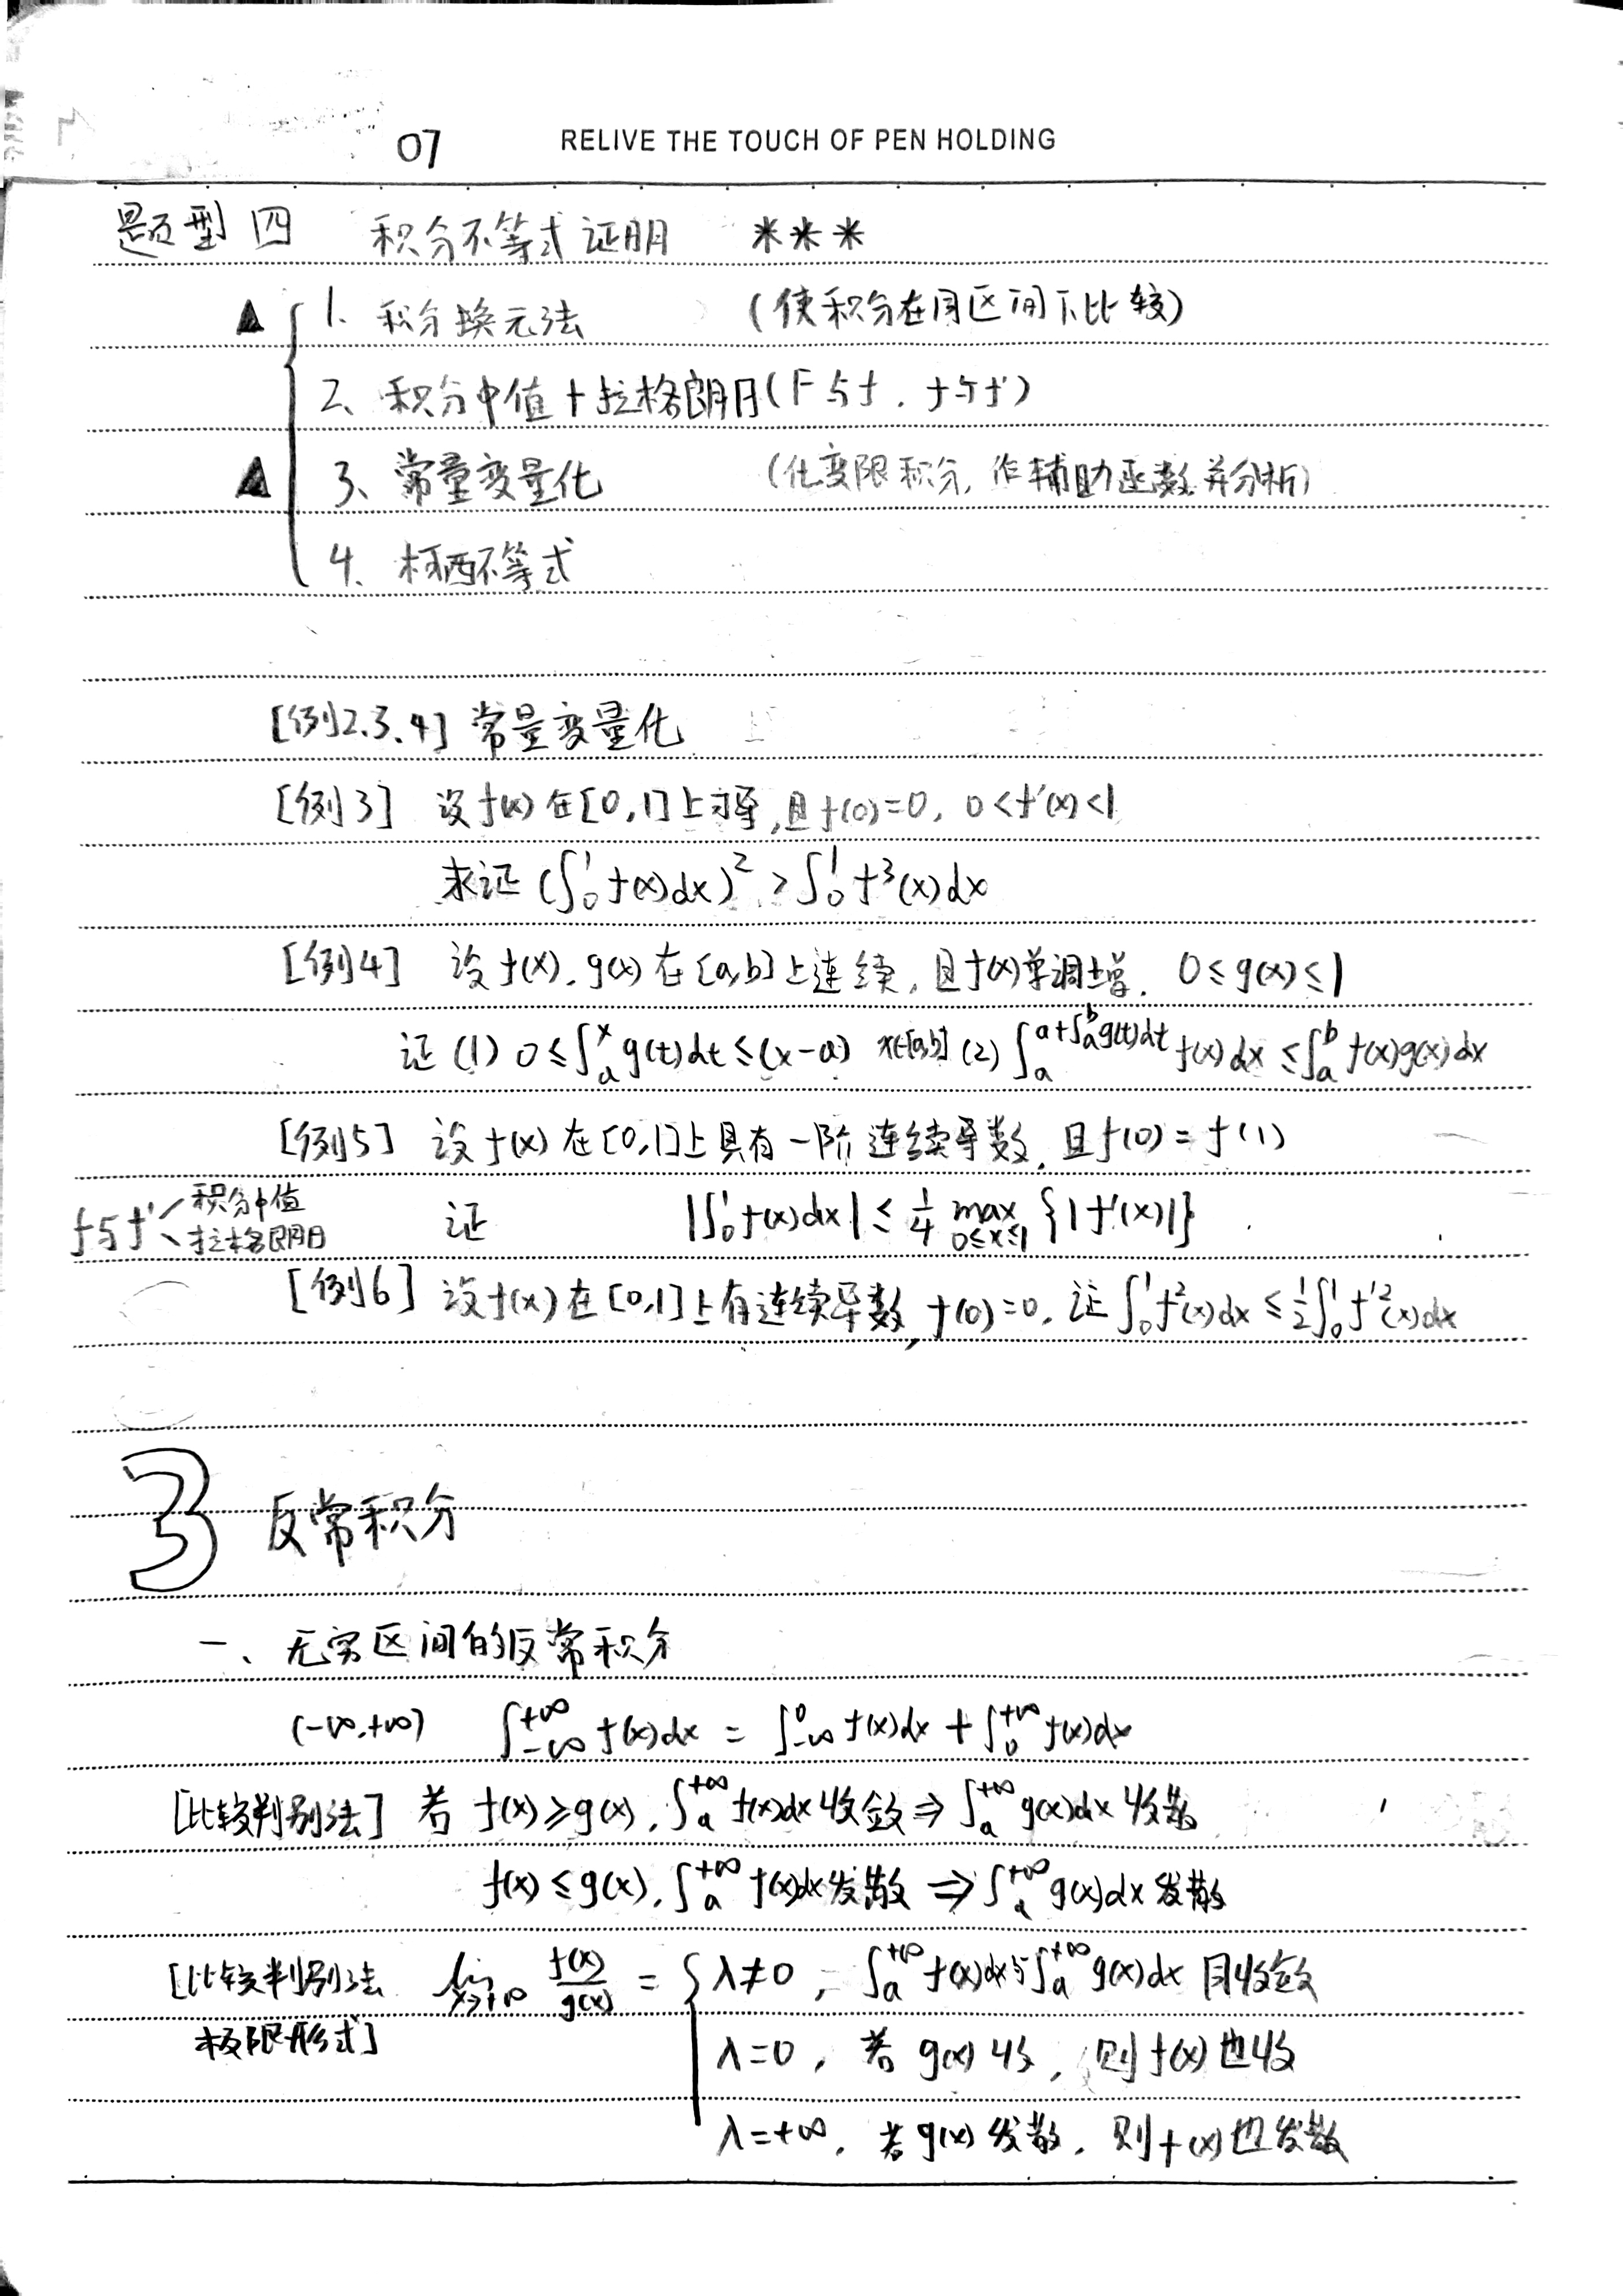 07 RELIVE THE TOUCH OF PEN HOLDING
题型四 积分不等式证明 ***
▲ 1、积分换元法 (使积分在同区间下比较)
2、积分中值+拉格朗日(F与f, f与f')
▲ 3、常量变量化 (化变限积分, 作辅助函数并分析)
4、柯西不等式
[例2.3.4] 常量变量化
[例3] 设f(x)在[0,1]上可导,且f(0)=0, 0<f'(x)<1
求证 (∫₀¹ f(x)dx)² > ∫₀¹ f³(x)dx
[例4] 设f(x),g(x)在[a,b]上连续, 且f(x)单调增, 0≤g(x)≤1
证 (1) 0≤∫ₐˣ g(t)dt≤(x-a) x∈[a,b] (2) ∫ₐ^(a+∫ₐᵇg(t)dt) f(x)dx ≤ ∫ₐᵇ f(x)g(x)dx
[例5] 设f(x)在[0,1]上具有一阶连续导数, 且f(0)=f(1)
f与f' 积分中值 拉格朗日 证 |∫₀¹ f(x)dx| ≤ 1/4 max 0≤x≤1 {|f'(x)|}
[例6] 设f(x)在[0,1]上有连续导数, f(0)=0, 证 ∫₀¹ f²(x)dx ≤ 1/2 ∫₀¹ f'²(x)dx
3 反常积分
一、无穷区间的反常积分
(-∞,+∞) ∫₋∞^+∞ f(x)dx = ∫₋∞^0 f(x)dx + ∫₀^+∞ f(x)dx
[比较判别法] 若 f(x)≥g(x), ∫ₐ^+∞ f(x)dx 收敛 ⇒ ∫ₐ^+∞ g(x)dx 收敛
f(x)≤g(x), ∫ₐ^+∞ f(x)dx 发散 ⇒ ∫ₐ^+∞ g(x)dx 发散
[比较判别法 极限形式] lim x→+∞ f(x)/g(x) = { λ≠0, ∫ₐ^+∞ f(x)dx与∫ₐ^+∞ g(x)dx 同收敛
λ=0, 若 g(x) 收, 则 f(x) 也收
λ=+∞, 若 g(x) 发散, 则 f(x) 也发散